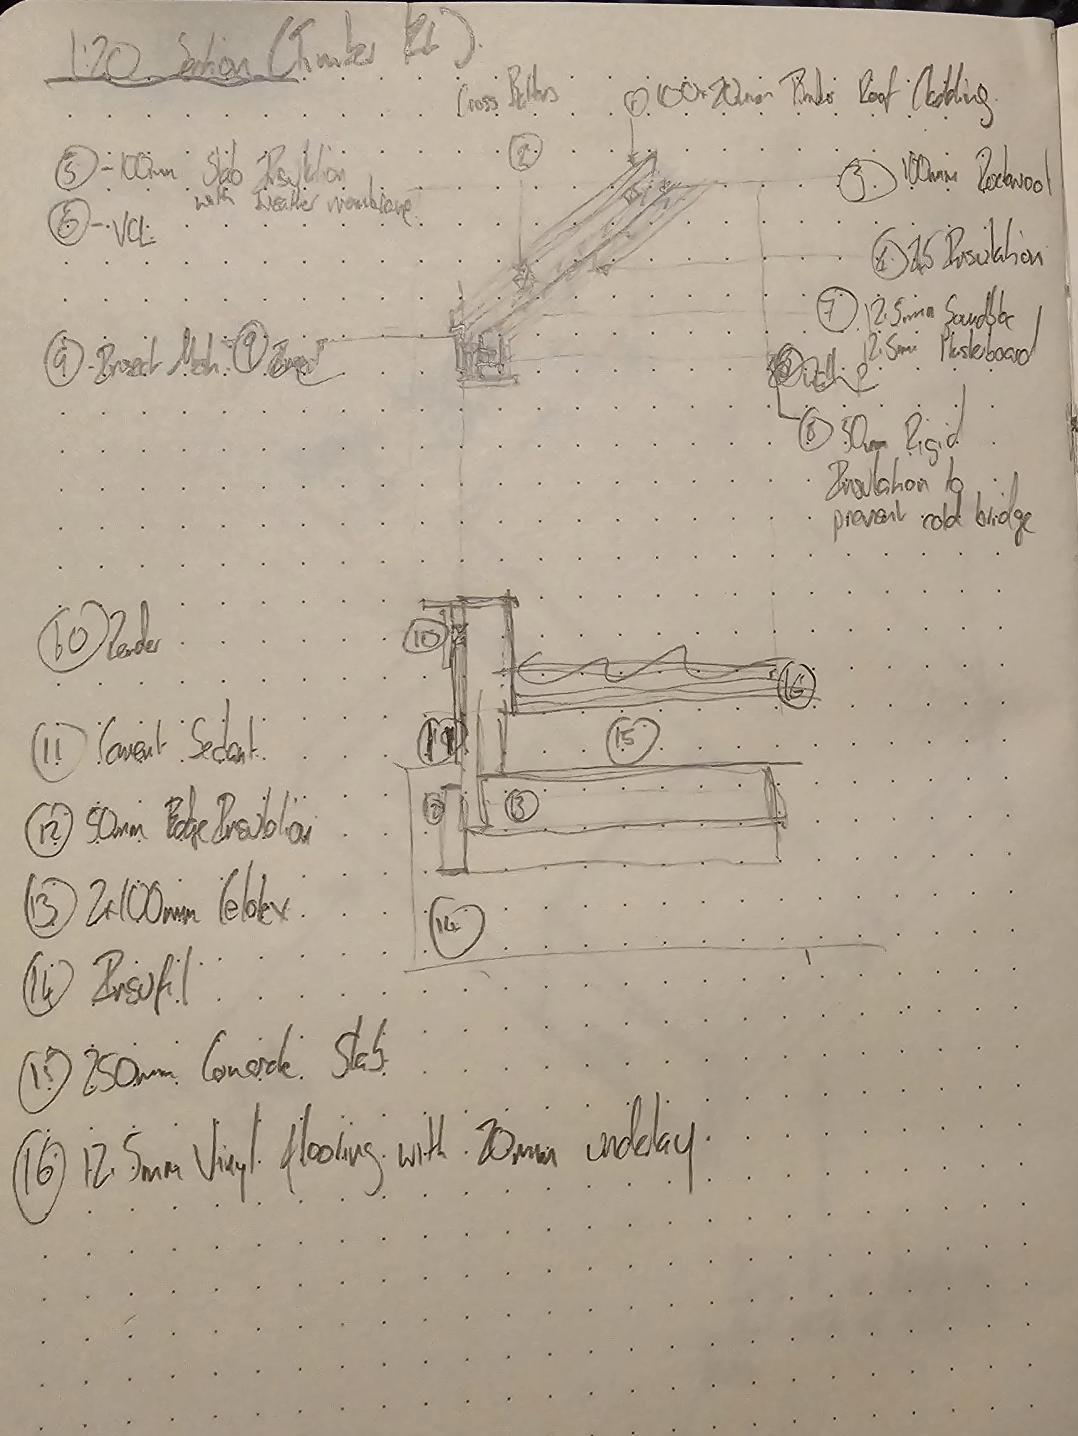 1:20 Section (Timber
Cross Battens
① 100x20mm Timber Roof Cladding.
②
⑤ - 100mm Slab Insulation
with weather membrane
⑥ - VCL
③ 100mm Rockwool
④ 25 Insulation
⑦ 12.5mm Soundbloc
12.5mm Plasterboard
⑨ - Insect Mesh. ⑨
⑧ 50mm Rigid
Insulation to
prevent cold bridge
⑩ Render
10
16
⑪ Cement Sedant.
11
15
⑫ 50mm Edge Insulation
12
13
⑬ 2x100mm Celotex
14
⑭ Insufil
⑮ 250mm Concrete Slab
⑯ 12.5mm Vinyl flooring with 20mm underlay.